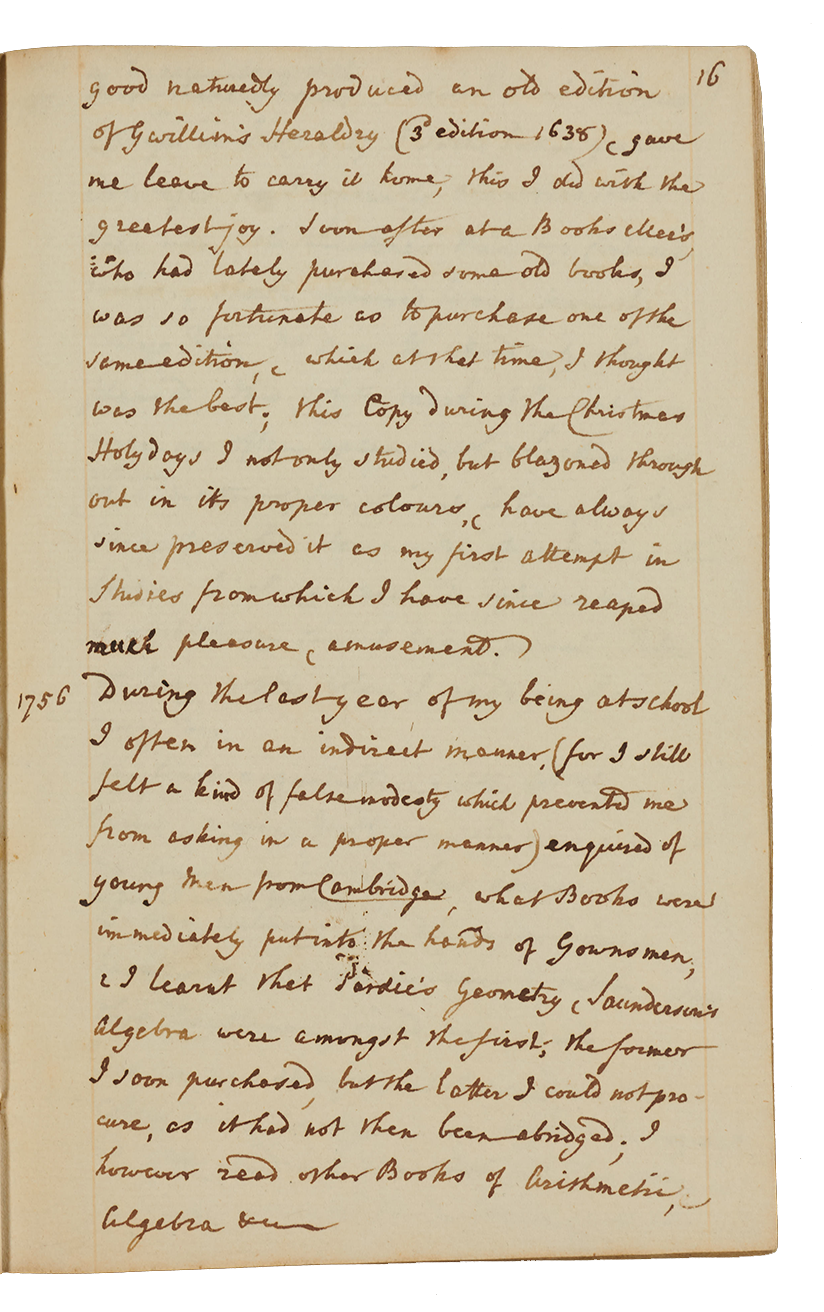 16
good naturedly produced an old edition
of Gwillim's Heraldry (3d edition 1638) & gave
me leave to carry it home, this I did with the
greatest joy. Soon after at a Booksellers,
who had lately purchased some old books, I
was so fortunate as to purchase one of the
same edition, & which at that time, I thought
was the best; this Copy during the Christmas
Holydays I not only studied, but blazoned through
out in its proper colours, & have always
since preserved it as my first attempt in
Studies from which I have since reaped
much pleasure & amusement.)
1756 During the last year of my being at school
I often in an indirect manner, (for I still
felt a kind of false modesty which prevented me
from asking in a proper manner) enquired of
young Men from Cambridge, what Books were
immediately put into the hands of Gownsmen,
& I learnt that Pardie's Geometry & Saunderson's
Algebra were amongst the first; the former
I soon purchased, but the latter I could not pro-
cure, as it had not then been abridged; I
however read other Books of Arithmetic,
Algebra &c